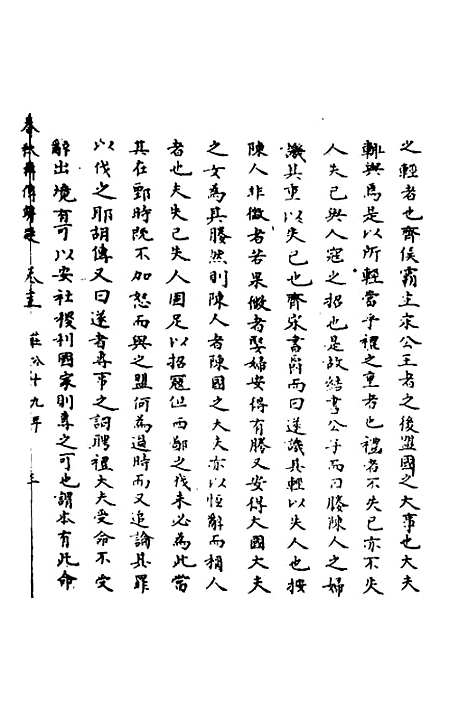 之輕者也齊侯霸主宋公王者之後盟國之大事也大夫
輒與焉是以所輕當乎禮之重者也禮者不失已亦不失
人失已與人寇之招也是故結書公子而曰媵陳人之婦
譏其重以失已也齊宋書爵而曰遂譏其輕以失人也按
陳人非微者若果微者娶婦安得有媵又安得大國大夫
之女為其媵然則陳人者陳國之大夫亦以恒辭而稱人
者也夫失已失人固足以招寇但西鄙之伐未必為此當
其在鄄時既不加怒而與之盟何為過時而又追論其罪
以伐之耶胡傳又曰遂者專事之詞聘禮大夫受命不受
辭出境有可以安社稷利國家則專之可也謂本有此命
春秋 傳 卷 莊公十九年